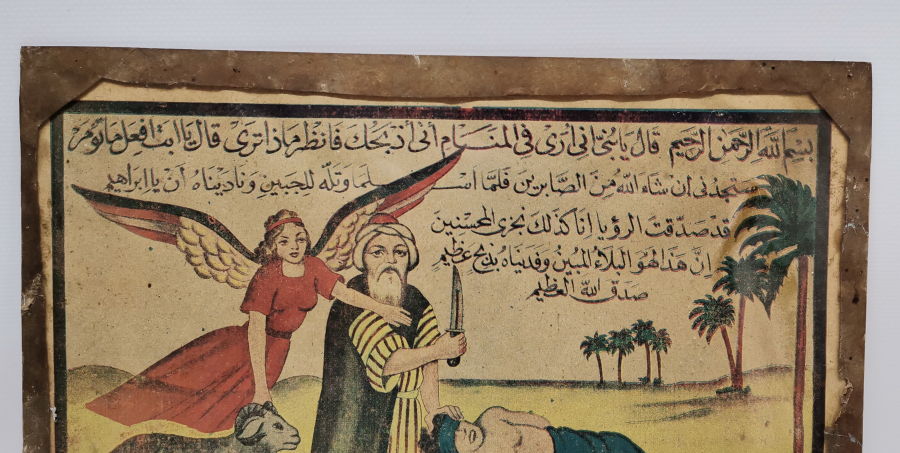 بسم الله الرحمن الرحيم قال يا بني اني أرى في المنام أني أذبحك فانظر ماذا ترى قال يا ابت افعل ما تؤمر
ستجدني ان شاء الله من الصابرين فلمّا أسلما وتلّه للجبين وناديناه أن يا ابراهيم
قد صدّقت الرؤيا إنا كذلك نجزي المحسنين
إنّ هذا لهو البلاء المبين وفديناه بذبح عظيم
صدق الله العظيم